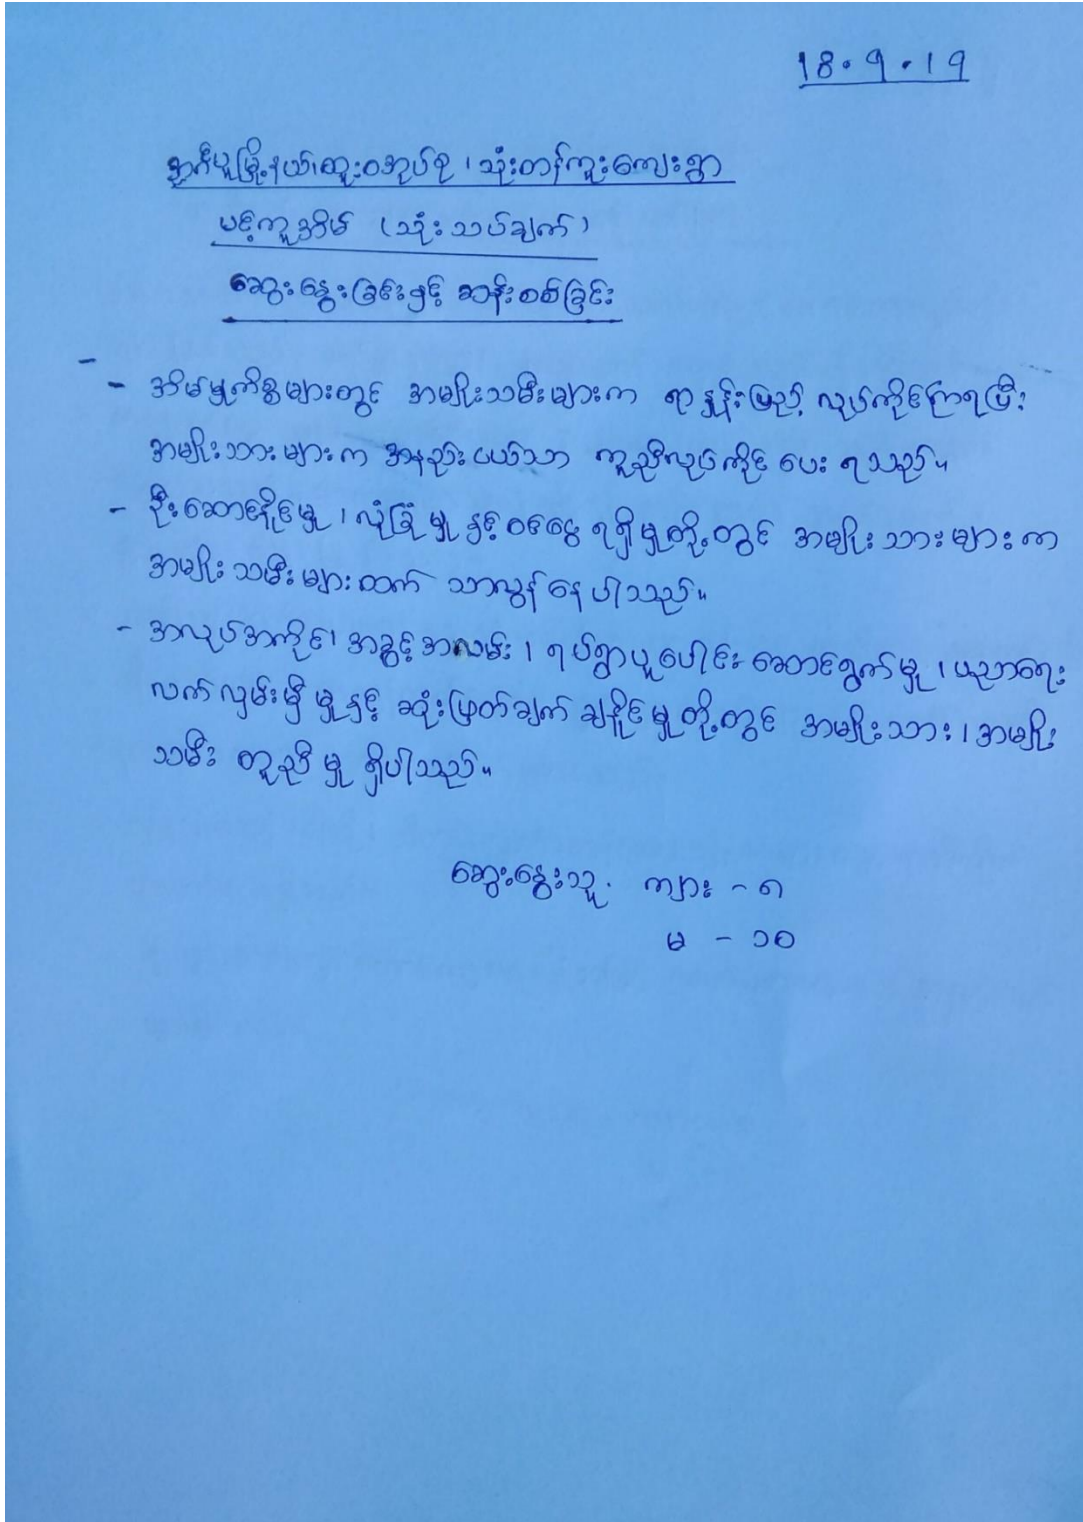 18.9.19
အင်္ဂပူမြို့နယ်၊ထူးဝအုပ်စု၊သုံးတန်ကူးကျေးရွာ
ပင့်ကူအိမ် (သုံးသပ်ချက်)
ဆွေးနွေးခြင်းနှင့် ဆန်းစစ်ခြင်း
-
- အိမ်မှုကိစ္စများတွင် အမျိုးသမီးများက ရာနှုန်းပြည့် လုပ်ကိုင်ကြရပြီး
အမျိုးသားများက အနည်းငယ်သာ ကူညီလုပ်ကိုင် ပေး ရသည်။
- ဦးဆောင်နိုင်မှု ၊ လုံခြုံမှု နှင့် ဝင်ငွေ ရရှိမှုတို့တွင် အမျိုးသားများက
အမျိုးသမီးများထက် သာလွန်နေပါသည်။
- အလုပ်အကိုင်၊ အခွင့်အလမ်း ၊ ရပ်ရွာပူပေါင်းဆောင်ရွက်မှု ၊ ပညာရေး
လက်လှမ်းမှီမှုနှင့် ဆုံးဖြတ်ချက် ချနိုင်မှုတို့တွင် အမျိုးသား၊ အမျိုး
သမီး တူညီမှု ရှိပါသည်။
ဆွေးနွေးသူ. ကျား - ၈
မ - ၁၀